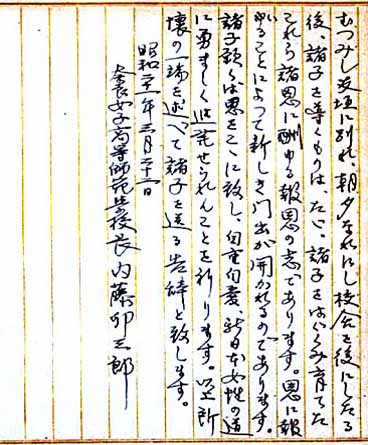 むつみし友垣に別れ、朝夕なれにし校舎を後にしたる
後、諸子を導くものは、たゞ、諸子をはぐくみ育てた
これら諸恩に酬ゆる報恩の念であります。恩に報
ゆることによって新しき門出が開かれるのであります。
諸子願くは思をこゝに致し、自重自愛、新日本女性の道
に勇ましく進発せられんことを祈ります。以上所
懐の一端を述べて諸子を送る告辞と致します。
昭和二十一年三月二十二日
奈良女子高等師範学校長 内藤卯三郎